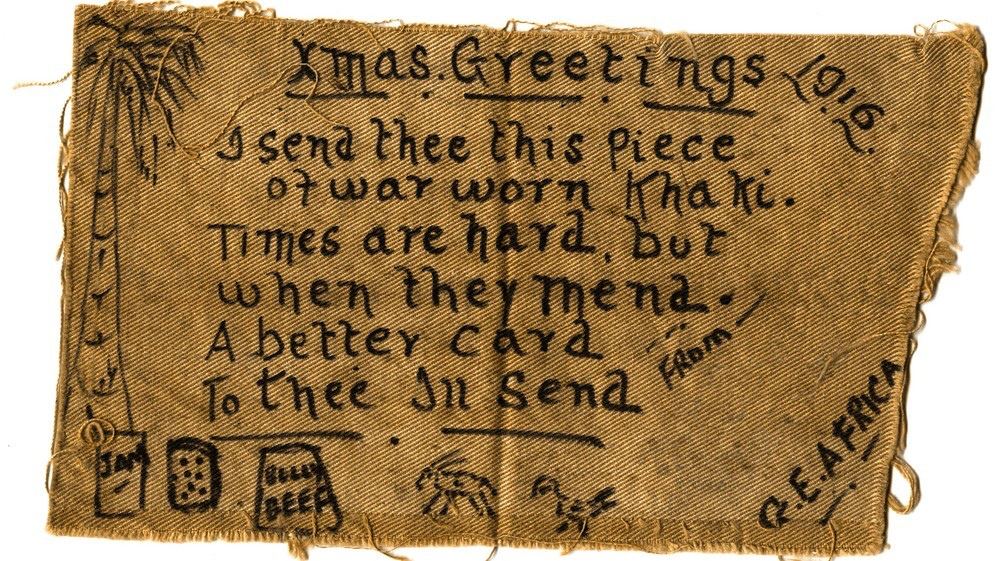 Xmas. Greetings 1916.
I send thee this piece
of war worn Khaki.
Times are hard, but
when they mend.
A better card
To thee Ill send
FROM—
G.E.AFRICA
JAM
BULLY
BEEF